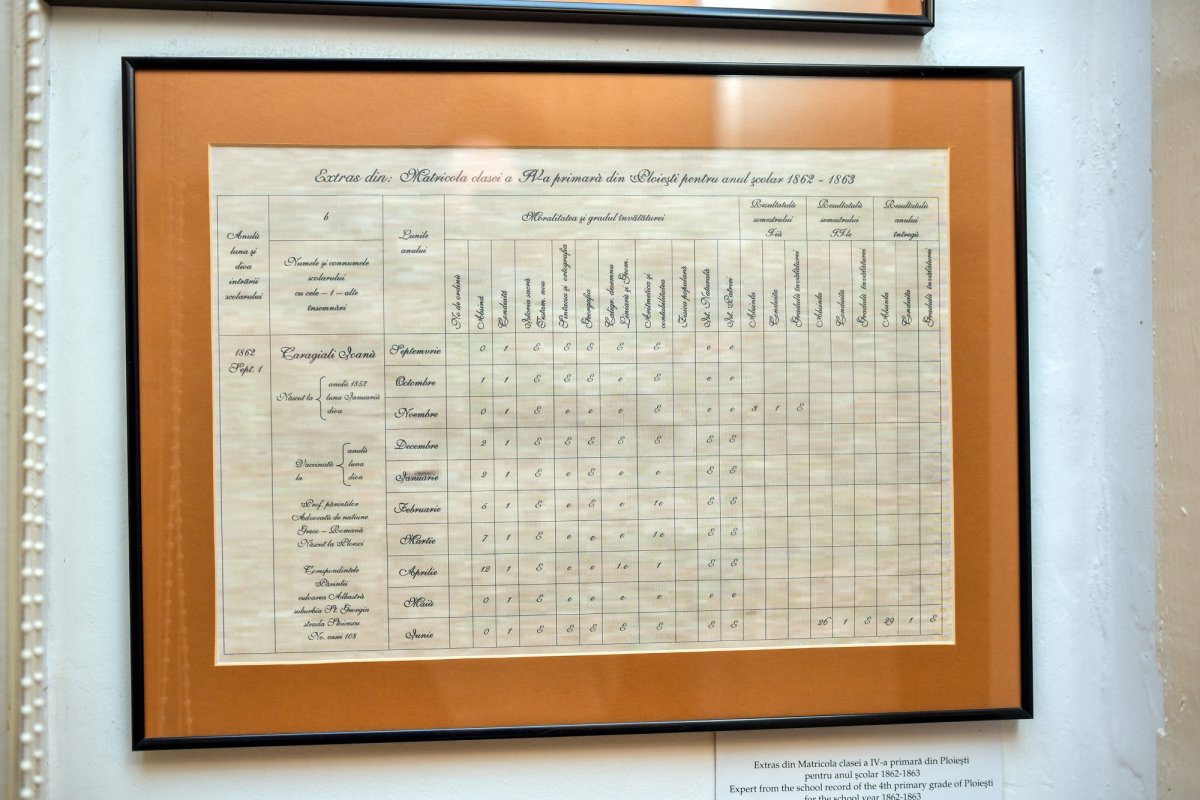 Extras din: Matricola clasei a IV-a primară din Ploiești pentru anul școlar 1862 - 1863
Anulŭ
luna și
dica
intrării
școlarului
b
Numele și connumele
scolarului
cu cele - 1 - alte
însemnări
Lunile
anului
Moralitatea și gradul învătăturei
Resultatulŭ
semestrului
I-iŭ
Resultatulŭ
semestrului
II-le
Resultatulŭ
anului
întregŭ
No de ordinŭ
Absind
Conduită
Istoria sacră
Testam. nou
Sintacsa și ortografia
Geografia
Caligr. desemnu
Liniară și Geom.
Aritmetica și
contabilitatea
Fisica populară
Ist. Naturală
Ist. Patriei
Absinta
Conduita
Gradulŭ învătăturei
Absinta
Conduita
Gradulŭ învătăturei
Absinta
Conduita
Gradulŭ învătăturei
1862
Sept. 1
Caragiali Ioanŭ
Născut la
anulŭ 1852
luna Ianuariŭ
dica
Vaccinatŭ
la
anulŭ
luna
dica
Prof. părintilor
Advocatŭ de natiune
Greco - Romană
Născut la Ploesci
Corespondintele
Părintii
culoarea Albastră
suburbia St. Georgiu
strada Stoicescu
No. casei 108
Septemvrie 0 1 E E E E E e e
Octombre 1 1 E E E e E e e
Noembre 0 1 E e e e E e e 3 1 E
Decembre 2 1 E E E E E E E
Ianuarie 2 1 E e E e e E E
Februarie 5 1 E e E e 1e E E
Martie 7 1 E e e e 1e E E
Aprilie 12 1 E e e 1e 1 E E
Maiŭ 0 1 E e e e e e e
Iunie 0 1 E E E E E E E 26 1 E 29 1 E
Extras din Matricola clasei a IV-a primară din Ploiești
pentru anul școlar 1862-1863
Expert from the school record of the 4th primary grade of Ploiești
for the school year 1862-1863